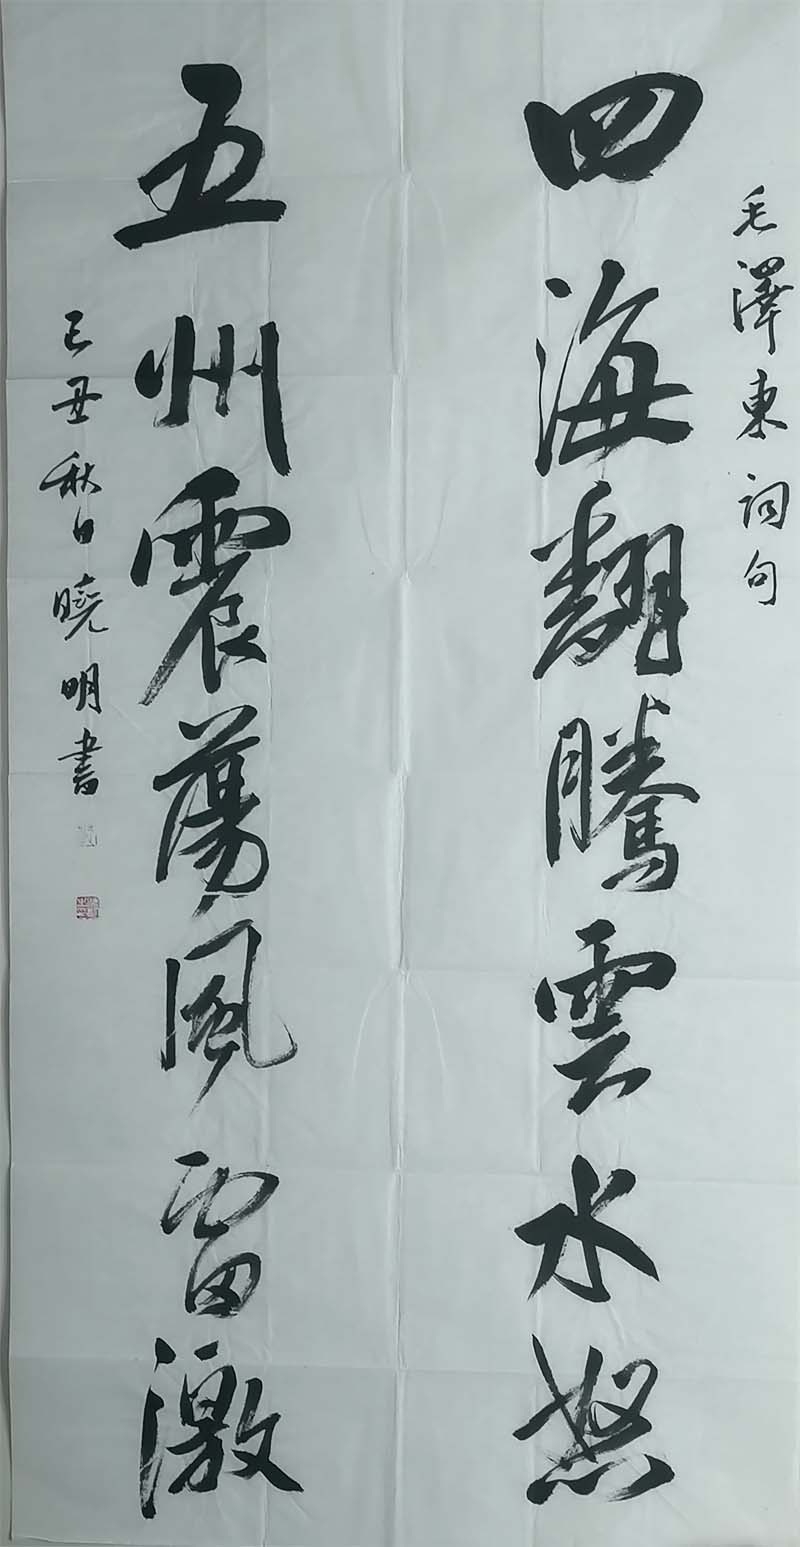 毛澤東詞句
四海翻騰雲水怒
五州震蕩風雷激
己丑秋日曉明書